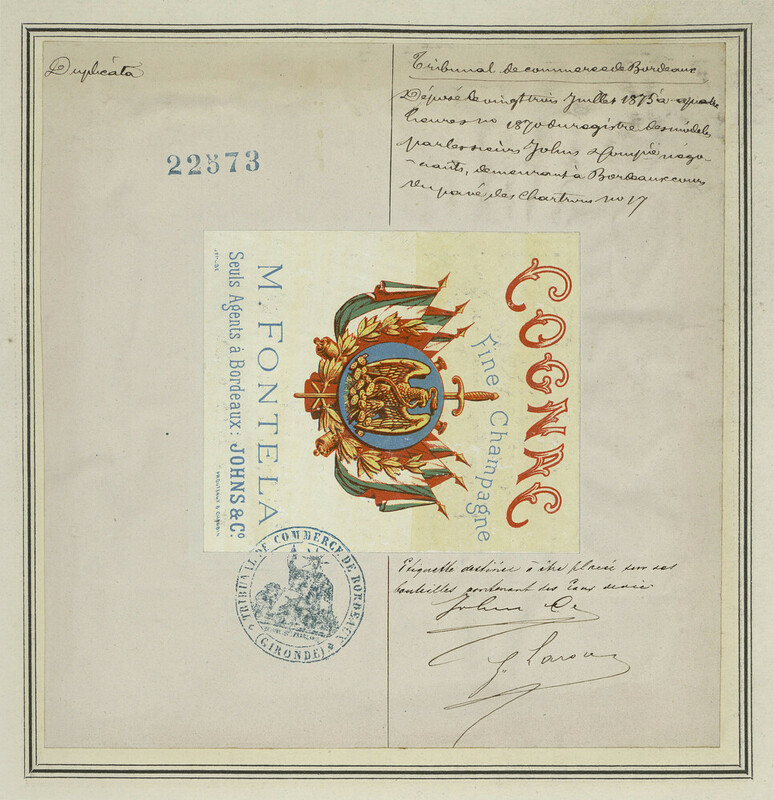 Duplicata
22573
Tribunal de commerce de Bordeaux
Déposé le vingt trois Juillet 1875 à quatre
heures no 1870 du registre des modèles
par les sieurs Johns & Compie négo-
-ciants, demeurant à Bordeaux cours
du pavé des Chartrons no 17
COGNAC
Fine Champagne
M. FONTELA
Seuls Agents à Bordeaux: JOHNS & Co
TRIBUNAL DE COMMERCE DE BORDEAUX
(GIRONDE)
Etiquette destinée à être placée sur des
bouteilles contenant des Eaux de vie
Johns & Co